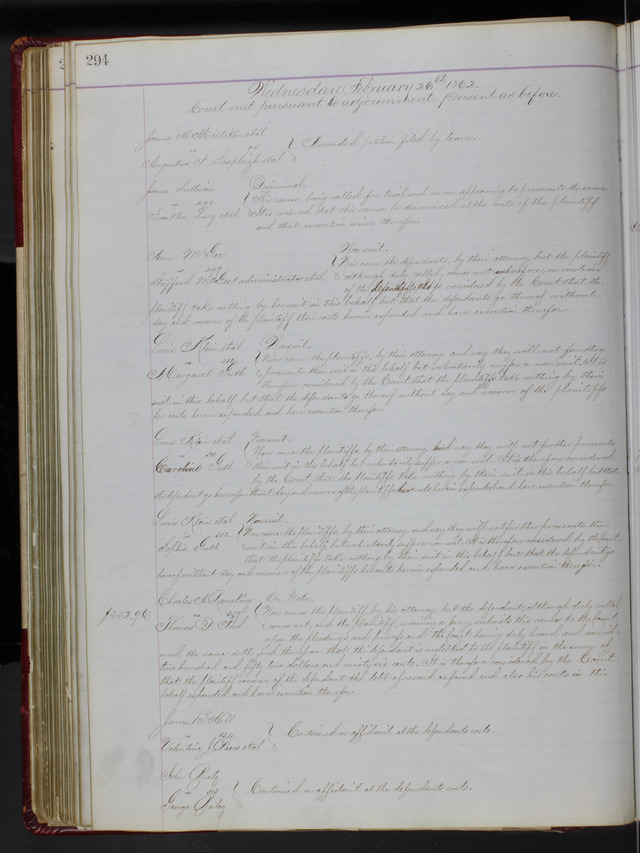 294
Wednesday February 26th 1862.
Court met pursuant to adjournment, present as before.
James A. Milliken et al
vs
Augustus F. et al
Amended petition filed by leave.
James Sullivan
vs
Franklin et al
Dismissal.
This cause being called for trial and none appearing to prosecute the same
It is ordered that this cause be dismissed at the costs of the plaintiff
and that execution issue therefor.
Ann McGee
vs
Stafford McGee administrator et al
Non suit.
Now come the defendants, by their attorney, but the plaintiff
although duly called, comes not wherefore, on motion
of the defendants, it is considered by the Court that the
plaintiff take nothing by her suit in this behalf but that the defendants go thereof without
day and recover of the plaintiff their costs herein expended and have execution therefor.
Louis Klein et al
vs
Margaret Guth
Nonsuit.
Now come the plaintiffs, by their attorney and say they will not further
prosecute their suit in this behalf but voluntarily suffer a non suit. It is
therefore considered by the Court that the plaintiffs take nothing by their
suit in this behalf but that the defendant go thereof without day and recover of the plaintiffs
her costs herein expended and have execution therefor.
Louis Klein et al
vs
Caroline Guth
Nonsuit.
Now come the plaintiffs, by their attorney, and say they will not further prosecute
their suit in this behalf, but voluntarily suffer a non suit. It is therefore considered
by the Court that the plaintiffs take nothing by their suit in this behalf but that
the defendant go hereof without day and recover of the plaintiffs her costs herein expended and have execution therefor
Louis Klein et al
vs 512
Sophie Guth
Non suit.
Now come the plaintiffs, by their attorney, and say they will not further prosecute their
suit in this behalf, but voluntarily suffer a non suit. It is therefore considered by the Court
that the plaintiffs take nothing by their suit in this behalf but that the defendant go
hereof without day and recover of the plaintiffs her costs herein expended and have execution therefor.
$252.96
Charles A.
vs
Thomas D.
On Note.
Now comes the plaintiff by his attorney, but the defendant, although duly called
comes not, and the plaintiff, waiving a jury, submits this cause to the Court
upon the pleadings and proofs and the Court having duly heard and consid-
ered the same doth find that the defendant is indebted to the plaintiff in the sum of
two hundred and fifty two dollars and ninety six cents. It is therefore considered by the Court
that the plaintiff recover of the defendant the debt aforesaid so found and also his costs in this
behalf expended and have execution therefor
James B. Hill
vs
Valentine J. et al
Continued on affidavit at the defendants costs.
John
vs
George
Continued on affidavit at the defendants costs.